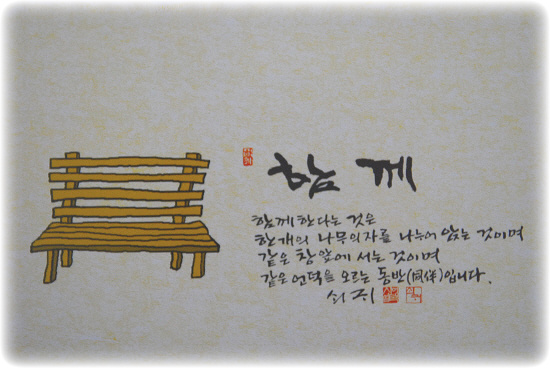 함께
함께한다는 것은
한개의 나무의자를 나누어 앉는 것이며
같은 창 앞에 서는 것이며
같은 언덕을 오르는 동반(同伴)입니다.
쇠귀